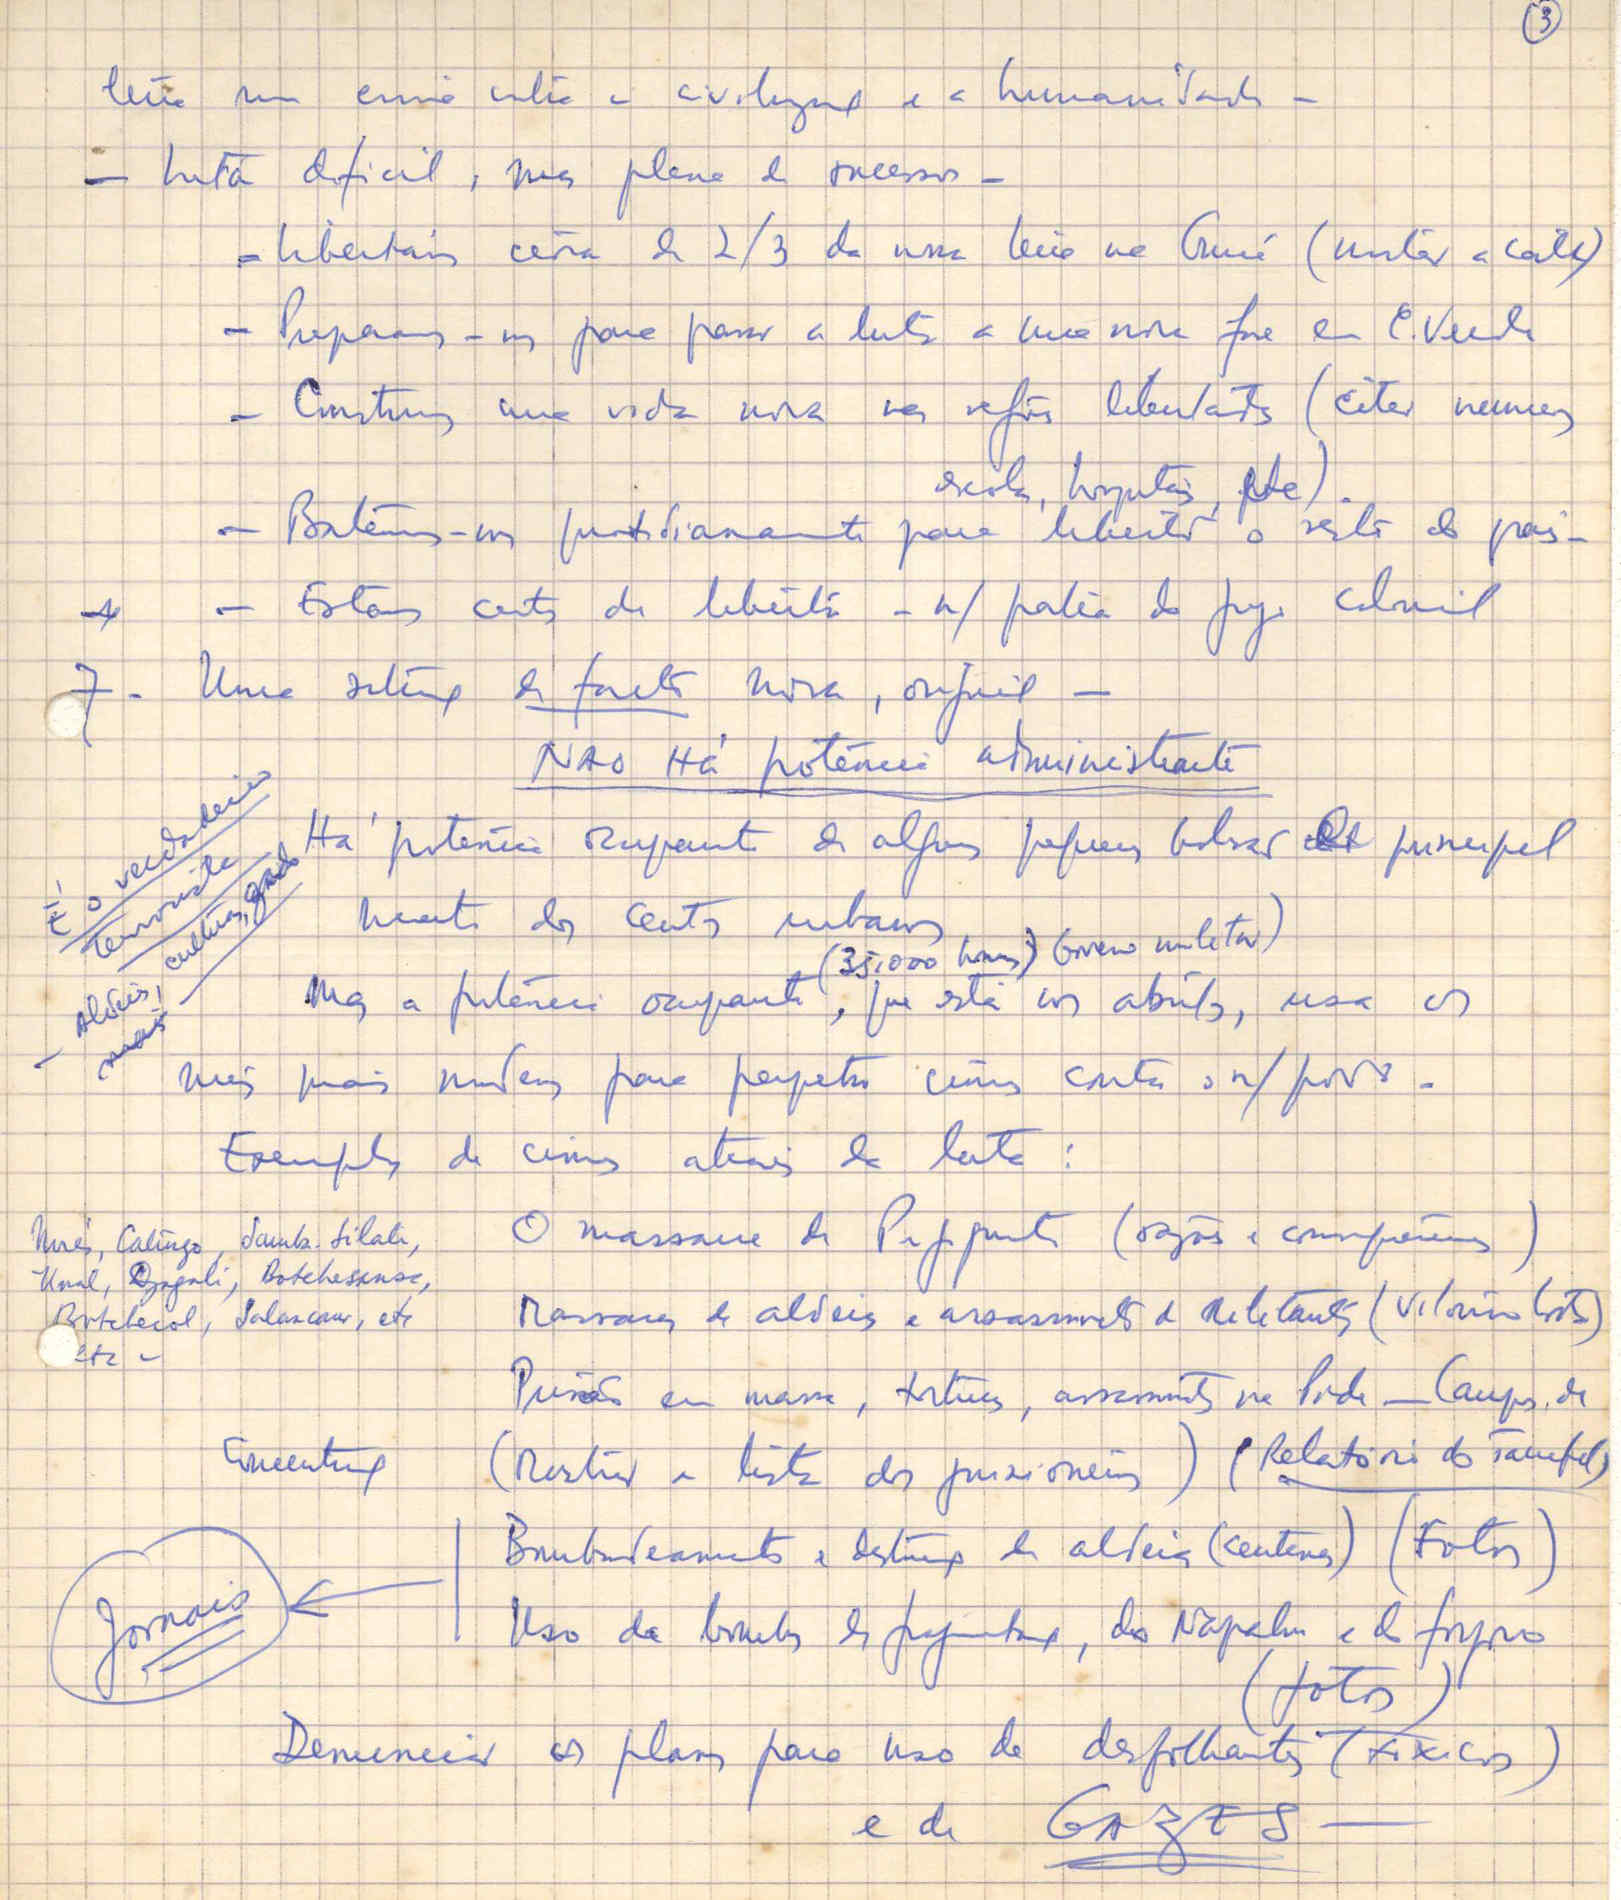 3
seria um crime contra a civilização e a humanidade -
- Luta difícil, mas plena de sucessos -
- Libertámos cerca de 2/3 da nossa terra na Guiné (mostrar a carta)
- Preparamo-nos para passar a luta a uma nova fase em C. Verde
- Construimos uma vida nova nas regiões libertadas (citar números
escolas, hospitais, etc).
- Batemo-nos quotidianamente para libertar o resto do país -
- Estamos certos de libertar - n/ pátria do jugo colonial
7 - Uma situação de facto nova, original -
NÃO HÁ potência administrante
Há potência ocupante de alguns pequenos bolsos e principal
mente dos centros urbanos
(35.000 homens) Governo militar)
Mas a potência ocupante, que está nos abrigos, usa os
meios mais modernos para perpetrar crimes contra o n/ povo -
É o verdadeiro
terrorista
- Aldeias, culturas, gado
Exemplos de crimes através da luta:
O massacre de Pigiguiti (razões e consequências)
Morés, Catungo, Samba-Silate,
Unal, Djagali, Botchessansa,
Botchecol, Salancaur, etc
etc -
Massacres de aldeias e assassinatos de militantes (Vitorino Costa)
Prisões em massa, torturas, assassinatos na Pide - Campos de
Concentração (Mostrar a lista dos prisioneiros) (Relatório do
Bombardeamentos e destruição de aldeias (centenas) (Fotos)
Jornais
Uso de bombas de fragmentação, do Napalm e do fósforo
(fotos)
Denunciar os planos para uso de desfolhantes (tóxicos)
e de GAZES -